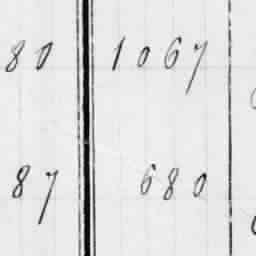 80 1067
87 680